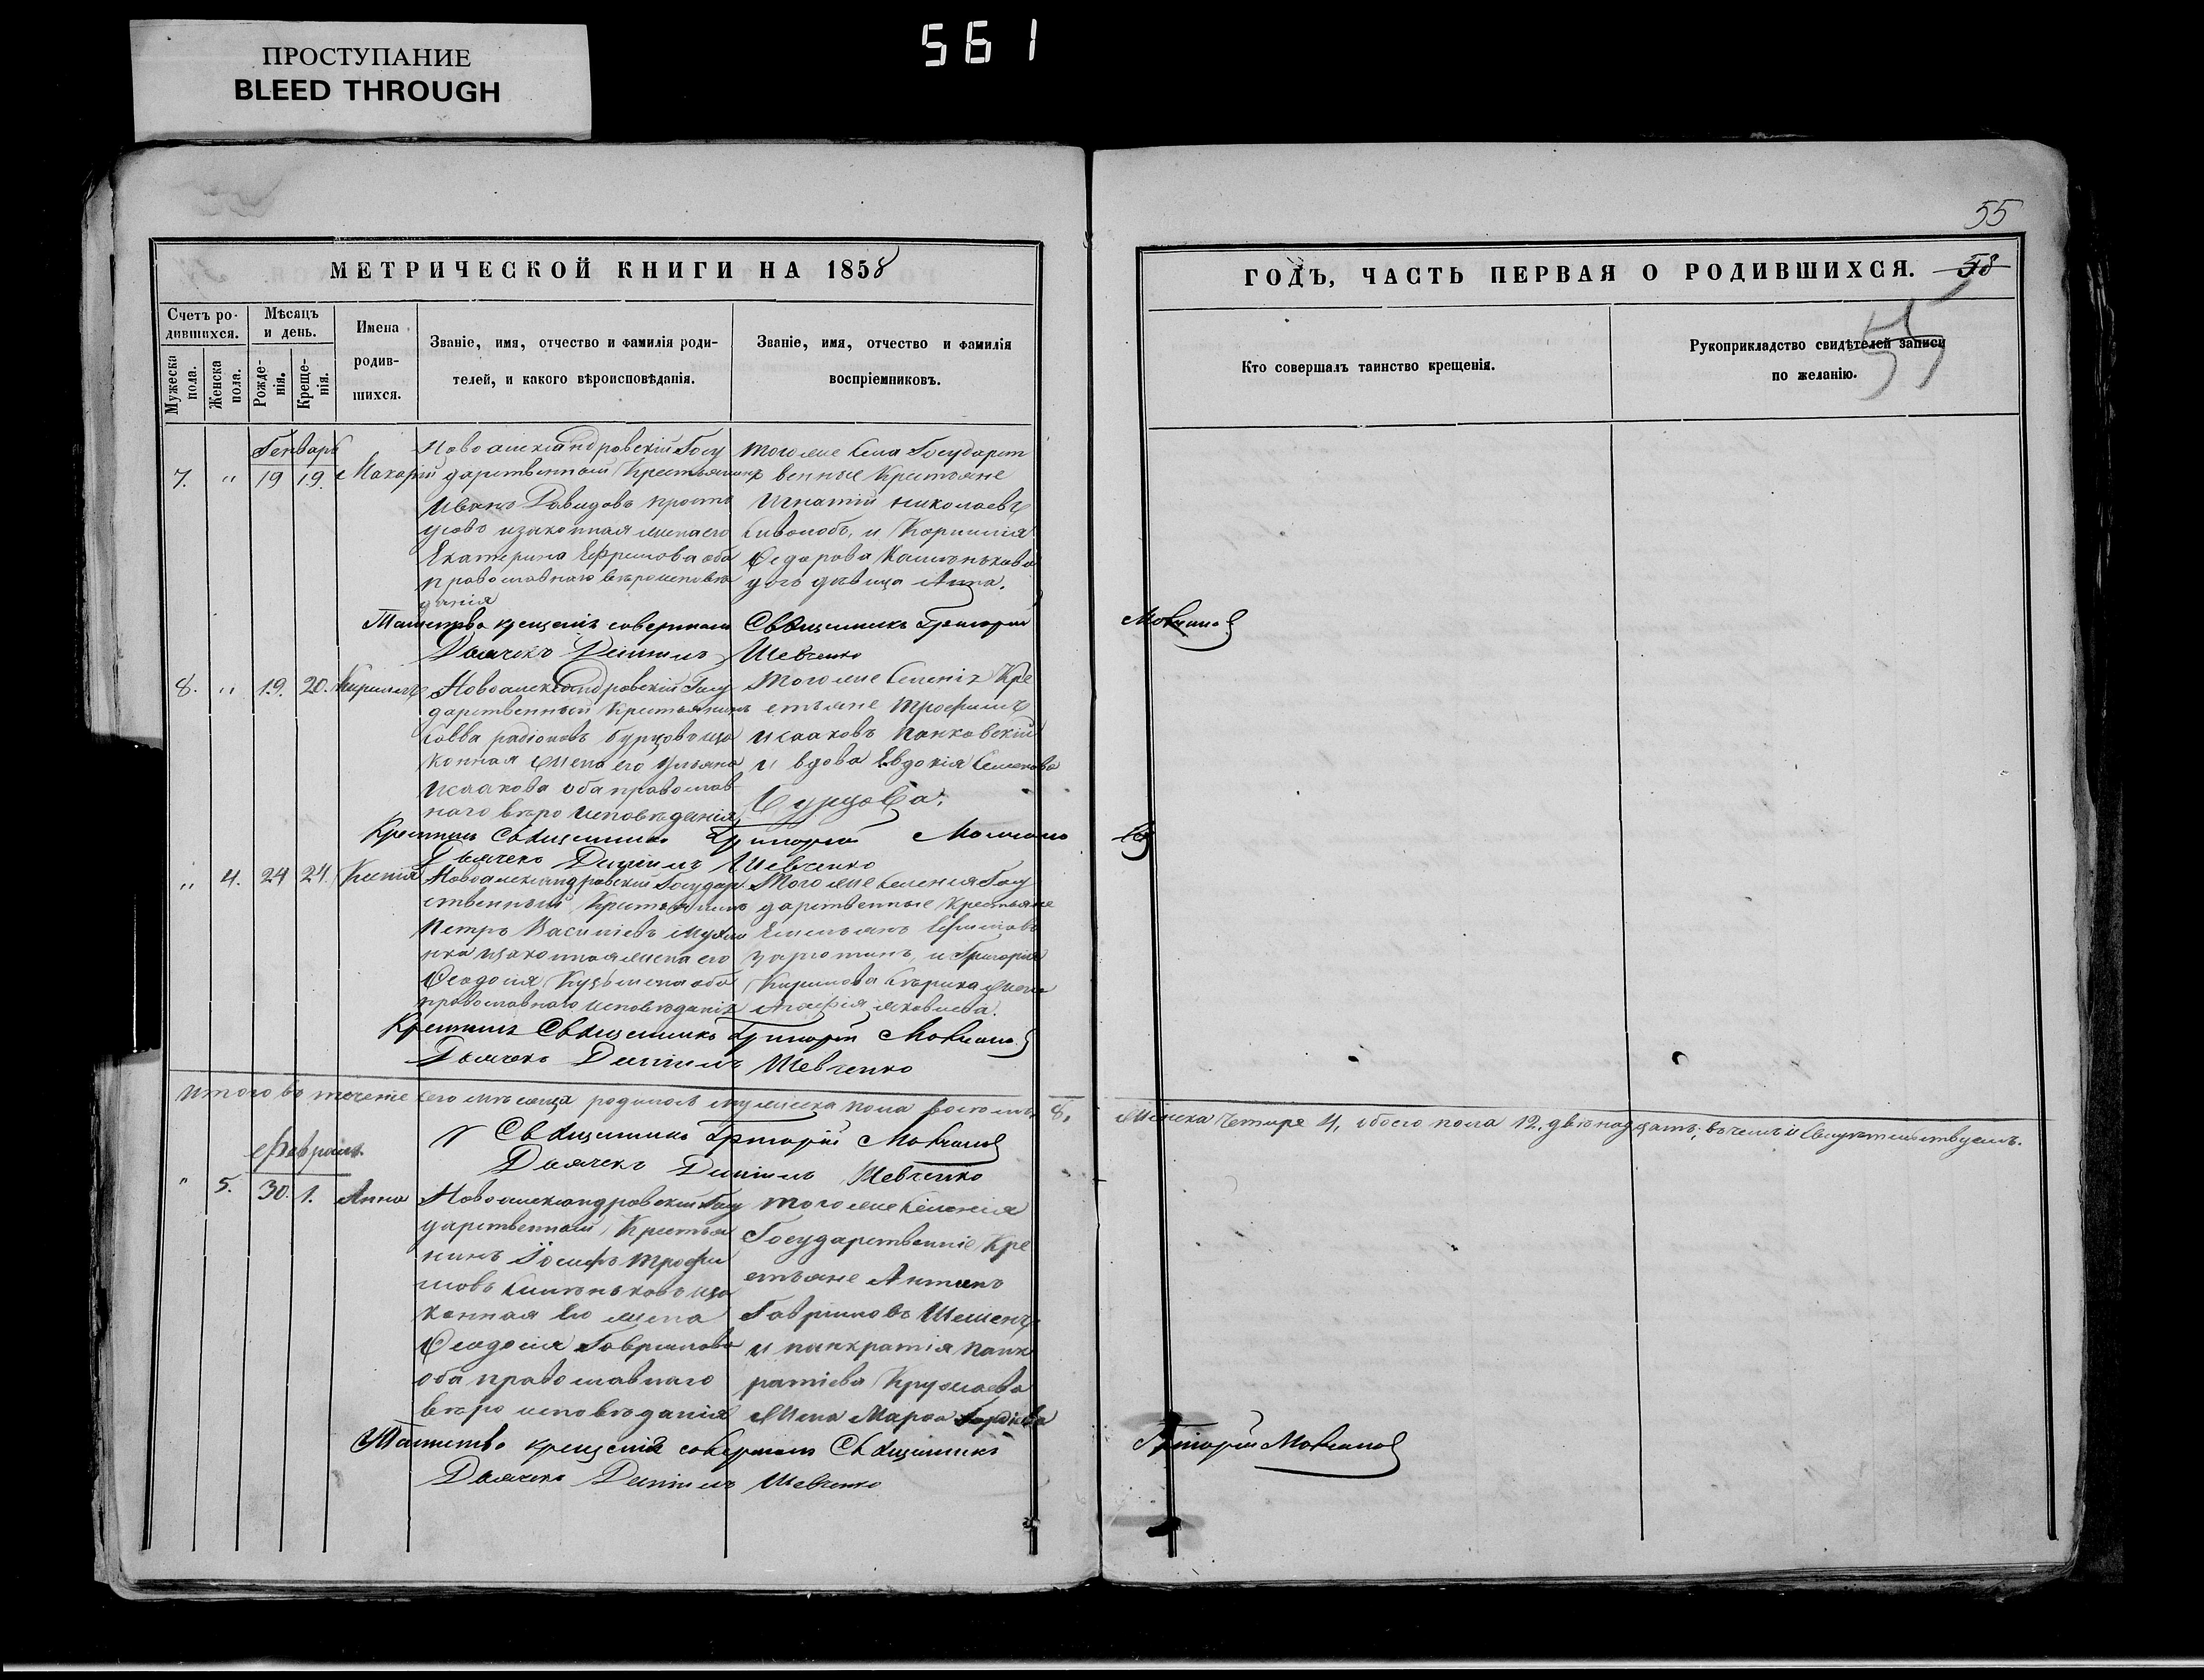 ПРОСТУПАНИЕ
BLEED THROUGH
561
55
МЕТРИЧЕСКОЙ КНИГИ НА 1858
ГОДЪ, ЧАСТЬ ПЕРВАЯ О РОДИВШИХСЯ. 58
55
Счетъ ро-
дившихся.
Мѣсяцъ
и день.
Мужеска
пола.
Женска
пола.
Рожде-
нія.
Креще-
нія.
Имена
родив-
шихся.
Званіе, имя, отчество и фамилія роди-
телей, и какого вѣроисповѣданія.
Званіе, имя, отчество и фамилія
воспріемниковъ.
Кто совершалъ таинство крещенія.
Рукоприкладство свидѣтелей записи
по желанію.
Генваръ
7. " 19 19. Макарій
Новоалександровскій Госу
дарственный Крестьянинъ
Иванъ Давидовъ
законная жена его
Екатерина Ефремова оба
православнаго вѣроисповѣ
данія
Того же Села Государст
венные Крестьяне
Игнатій Николаевъ
и Корнилія
дѣвица Анна.
Таинство крещенія совершалъ Священникъ Григорій Мовчанов
Дьячекъ Даніилъ Шевченко
8. " 19. 20. Кириллъ
Новоалександровскій Госу
дарственный Крестьянинъ
Савва Радіоновъ Бурцовъ иза
конная жена его Ульяна
Исаакова оба православ
наго вѣро исповѣданія
Того же Селенія Кре
стьяне Трофимъ
Исааковъ Панковскій
и вдова Евдокія Семенова
Бурцова.
Крестилъ Священникъ Григорій Молчанов
Дьячекъ Даніилъ Шевченко
" 4. 24 24. Ксенія
Новоалександровскій Государ
ственный Крестьянинъ
Петръ Василіевъ
изаконная жена его
Ѳеодосія Кузьмена оба
православнаго исповѣданія
Того же Селенія Госу
дарственные Крестьяне
Емельянъ
и Григорія
Кирилова жена
Агафія Яковлева.
Крестилъ Священникъ Григорій Мовчанов
Дьячекъ Даніилъ Шевченко
Итого въ теченіе сего мѣсяца родилось мужеска пола восемь 8, женска Четыре 4, обоего пола 12. двѣнадцать; въ чемъ и Свидѣтельствуемъ.
Священникъ Григорій Мовчанов
Дьячекъ Даніилъ Шевченко
Февраль
" 5. 30. 1. Анна
Новоалександровскій Госу
дарственный Крестья
нинъ Іосифъ Трофи
мовъ иза
конная его жена
Ѳеодосія Гаврилова
оба православнаго
вѣро исповѣданія
Того же Селенія
Государственніе Кре
стьяне Антонъ
Гавриловъ
и Панкратія Панк
ратіева
жена Марѳа
Таинство крещенія совершалъ Священникъ Григорій Мовчанов
Дьячекъ Даніилъ Шевченко